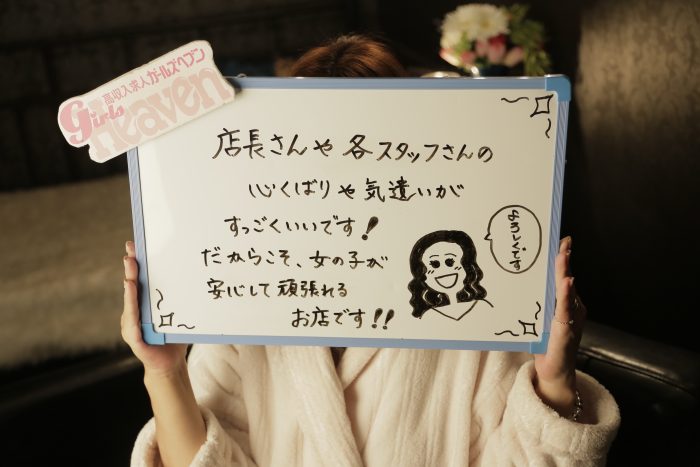 高収入求人ガールズヘブン
girls heaven
店長さんや各スタッフさんの
心くばりや気遣いが
すっごくいいです!
だからこそ、女の子が
安心して頑張れる
お店です!!
よろしくです